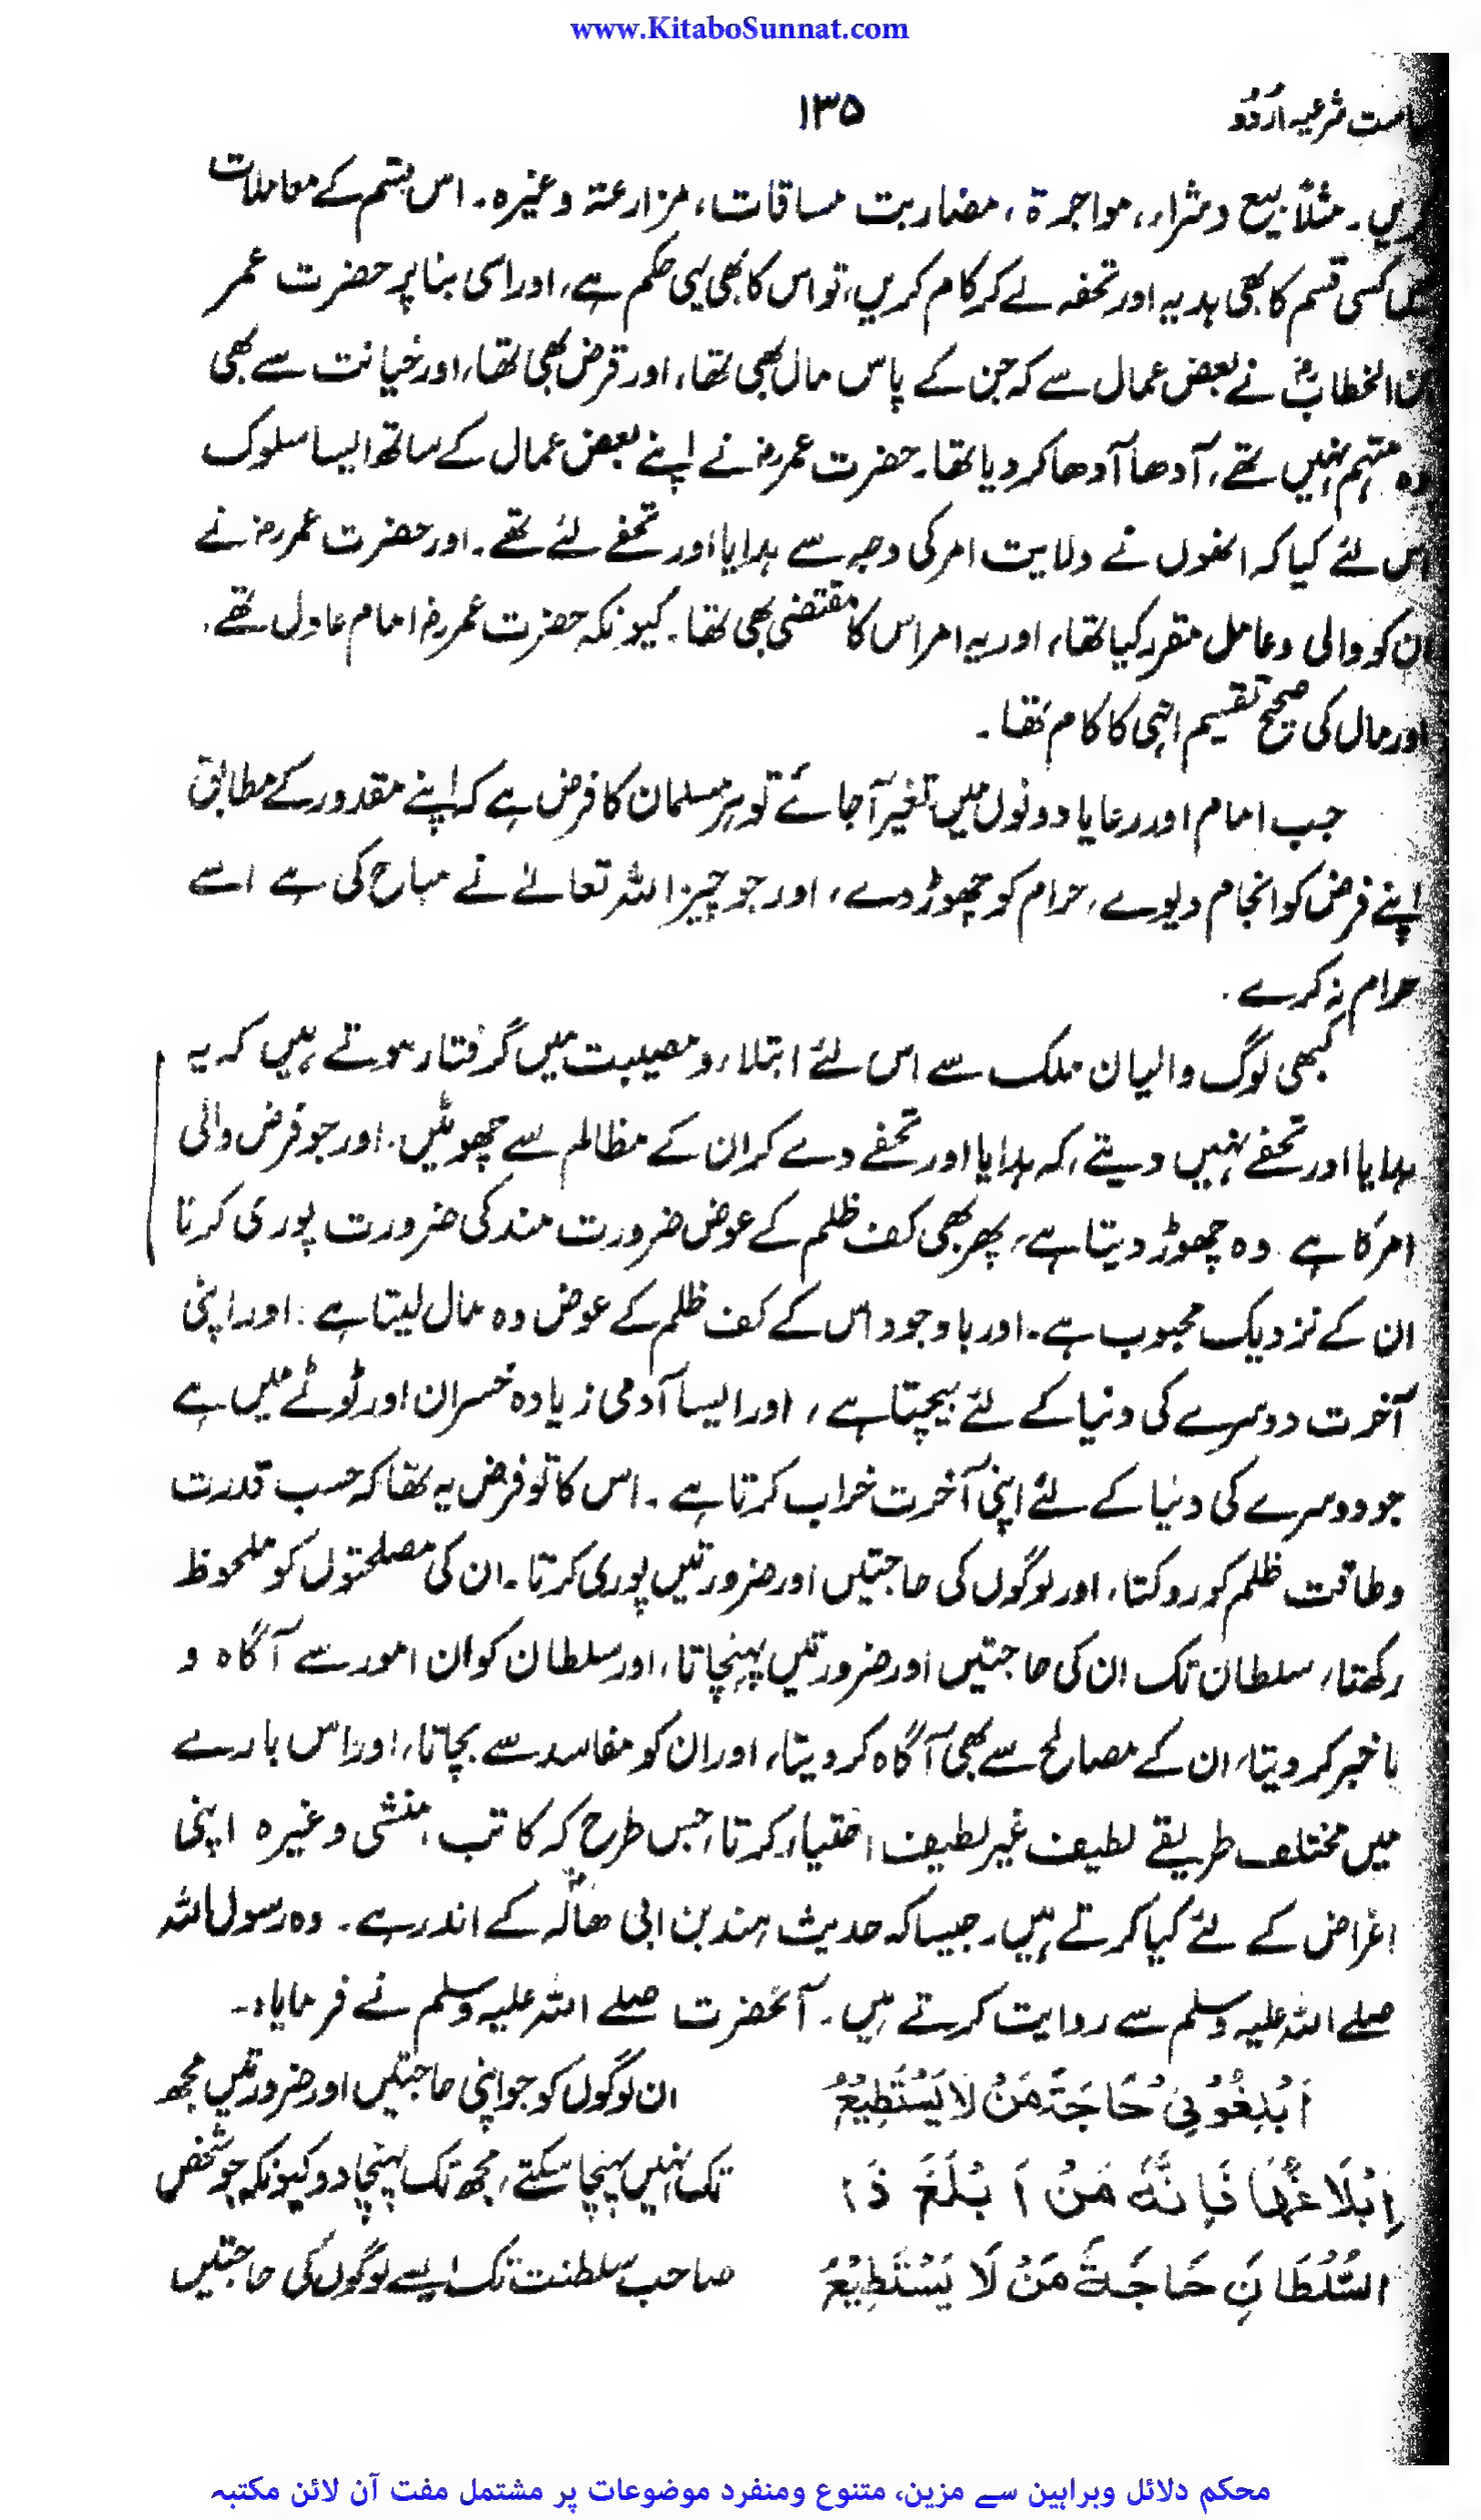 www.KitaboSunnat.com
۱۳۵
شرعیہ اردو
کریں۔ مثلاً بیع وشراء، مواجرۃ، مضاربت مساقات، مزارعتہ وغیرہ۔ اس قسم کے معاملات
میں کسی قسم کا بھی ہدیہ اور تحفہ لے کر کام کریں، تو اس کا بھی یہی حکم ہے، اور اسی بنا پر حضرت عمر
بن الخطابؓ نے بعض عمال سے کہ جن کے پاس مال بھی تھا، اور قرض بھی تھا، اور خیانت سے بھی
وہ متہم نہیں تھے، آدھا آدھا کر دیا تھا۔ حضرت عمررضؓ نے اپنے بعض عمال کے ساتھ ایسا سلوک
اس لئے کیا کہ انھوں نے ولایت امر کی وجہ سے ہدایا اور تحفے لئے تھے۔ اور حضرت عمررضؓ نے
ان کو والی وعامل مقرر کیا تھا، اور یہ امر اس کا مقتضی بھی تھا۔ کیونکہ حضرت عمررضؓ امام عادل تھے،
اور مال کی صحیح تقسیم انہی کا کام تھا۔
جب امام اور رعایا دونوں میں تغیر آجائے تو ہر مسلمان کا فرض ہے کہ اپنے مقدور کے مطابق
اپنے فرض کو انجام دیوے، حرام کو چھوڑ دے، اور جو چیز اللہ تعالےٰ نے مباح کی ہے اسے
حرام نہ کرے۔
کبھی لوگ والیان ملک سے اس لئے ابتلاء و مصیبت میں گرفتار ہوتے ہیں کہ یہ
ہدایا اور تحفے نہیں دیتے، کہ ہدایا اور تحفے دے کر ان کے مظالم سے چھوٹیں، اور جو فرض والی
امر کا ہے وہ چھوڑ دیتا ہے، پھر بھی کف ظلم کے عوض ضرورت مند کی ضرورت پوری کرنا
ان کے نزدیک محبوب ہے۔ اور باوجود اس کے کف ظلم کے عوض وہ مال لیتا ہے۔ اور اپنی
آخرت دوسرے کی دنیا کے لئے بیچتا ہے، اور ایسا آدمی زیادہ خسران اور ٹوٹے میں ہے
جو دوسرے کی دنیا کے لئے اپنی آخرت خراب کرتا ہے۔ اس کا تو فرض یہ تھا کہ حسب قدرت
و طاقت ظلم کو روکتا، اور لوگوں کی حاجتیں اور ضرورتیں پوری کرتا۔ ان کی مصلحتوں کو ملحوظ
رکھتا، سلطان تک ان کی حاجتیں اور ضرورتیں پہنچاتا، اور سلطان کو ان امور سے آگاہ و
باخبر کر دیتا، ان کے مصالح سے بھی آگاہ کر دیتا، اور ان کو مفاسد سے بچاتا، اور اس بارے
میں مختلف طریقے لطیف غیر لطیف اختیار کرتا، جس طرح کہ کاتب، منشی وغیرہ اپنی
اغراض کے لئے کیا کرتے ہیں۔ جیسا کہ حدیث ہند بن ابی ھالہؓ کے اندر ہے۔ وہ رسول اللہ
صلے اللہ علیہ وسلم سے روایت کرتے ہیں۔ آنحضرت صلے اللہ علیہ وسلم نے فرمایا:۔
اَبْلِغُوْنِیْ حَاجَةَ مَنْ لَا یَسْتَطِیْعُ
اِبْلَاغَهَا فَاِنَّهٗ مَنْ اَبْلَغَ ذَا
السُّلْطَانِ حَاجَةَ مَنْ لَا یَسْتَطِیْعُ
ان لوگوں کو جو اپنی حاجتیں اور ضرورتیں مجھ
تک نہیں پہنچا سکتے، مجھ تک پہنچا دو کیونکہ جو شخص
صاحب سلطنت تک ایسے لوگوں کی حاجتیں
محکم دلائل وبراہین سے مزین، متنوع ومنفرد موضوعات پر مشتمل مفت آن لائن مکتبہ